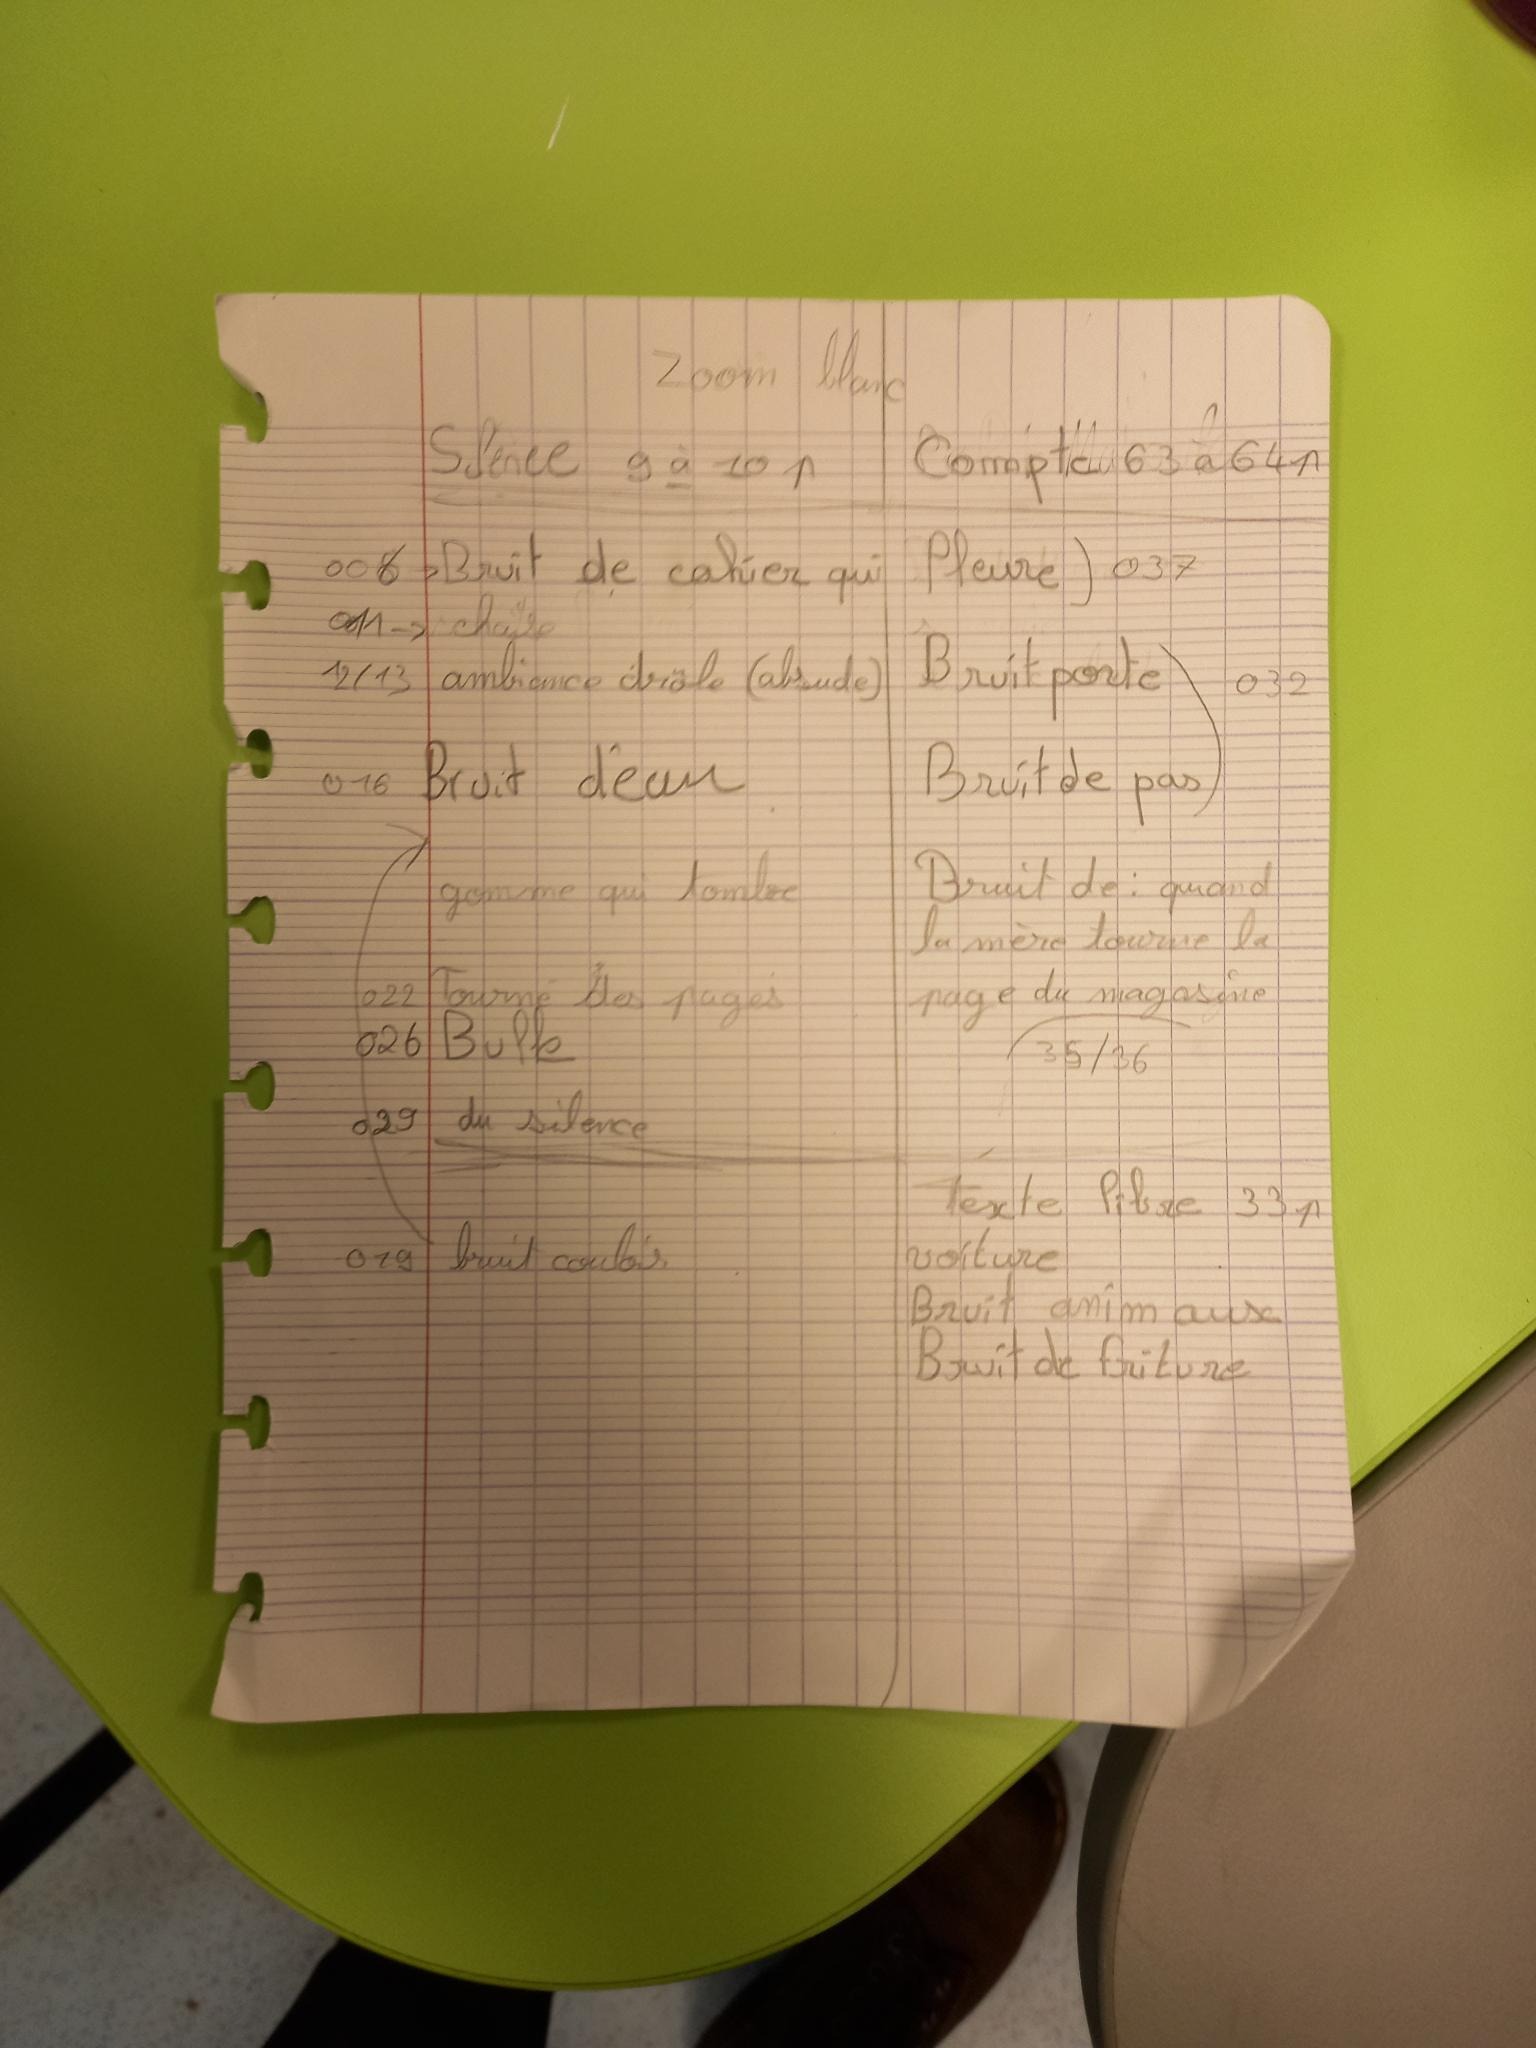 Zoom blanc
Silence 9 à 10 p
008 → Bruit de cahier qui
011 → chaise
12/13 ambiance drôle (absude)
016 Bruit d'eau
gomme qui tombe
022 Tourné des pages
026 Bulle
029 du silence
019 bruit couloir
63 à 64 p
Pleure) 037
Bruit porte 032
Bruit de pas
Bruit de : quand
la mère tourne la
page du magasine
35/36
Texte libre 33 p
voiture
Bruit animaux
Bruit de friture